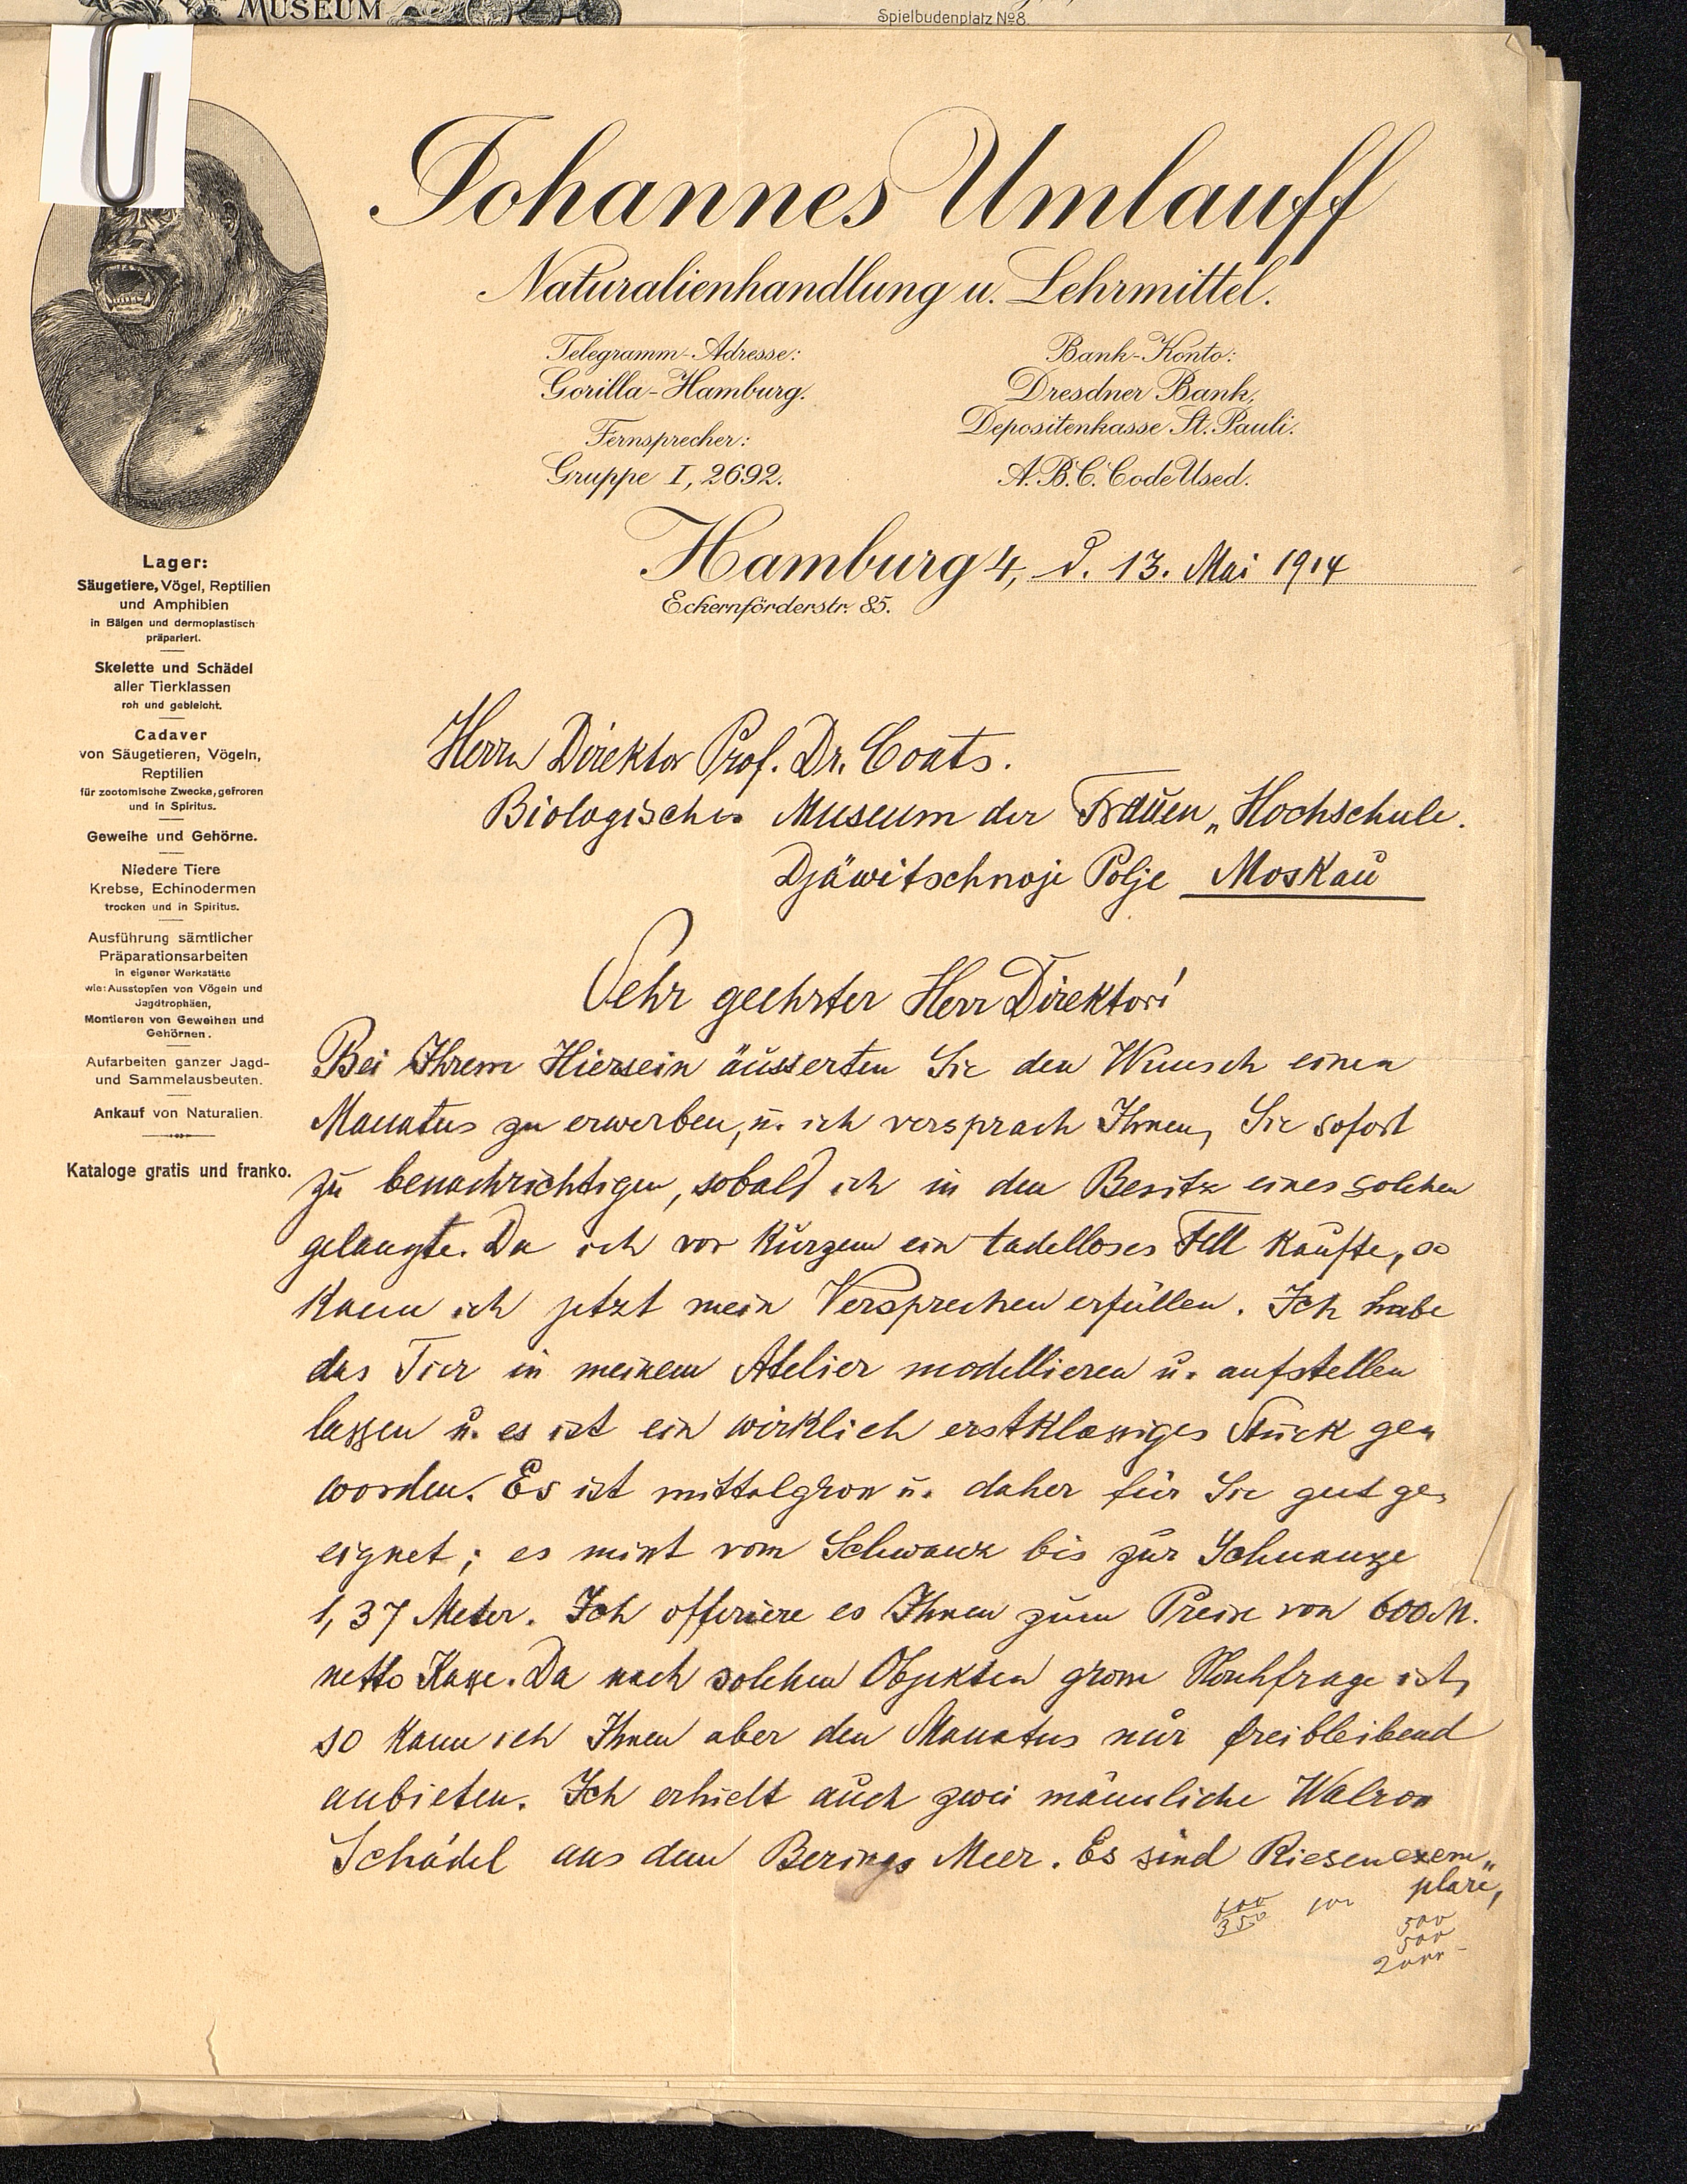 MUSEUM
Spielbudenplatz No 8
Johannes Umlauff
Naturalienhandlung u. Lehrmittel.
Telegramm-Adresse:
Gorilla-Hamburg.
Fernsprecher:
Gruppe I, 2692.
Bank-Konto:
Dresdner Bank,
Depositenkasse St. Pauli.
A.B.C. Code Used.
Hamburg 4, d. 13. Mai 1914
Eckernförderstr. 85.
Lager:
Säugetiere, Vögel, Reptilien
und Amphibien
in Bälgen und dermoplastisch
präpariert.
Skelette und Schädel
aller Tierklassen
roh und gebleicht.
Cadaver
von Säugetieren, Vögeln,
Reptilien
für zootomische Zwecke, gefroren
und in Spiritus.
Geweihe und Gehörne.
Niedere Tiere
Krebse, Echinodermen
trocken und in Spiritus.
Ausführung sämtlicher
Präparationsarbeiten
in eigener Werkstätte
wie: Ausstopfen von Vögeln und
Jagdtrophäen,
Montieren von Geweihen und
Gehörnen.
Aufarbeiten ganzer Jagd-
und Sammelausbeuten.
Ankauf von Naturalien.
Kataloge gratis und franko.
Herrn Direktor Prof. Dr. Coats.
Biologisches Museum der Frauen „Hochschule.
Djäwitschnoje Polje Moskau
Sehr geehrter Herr Direktor!
Bei Ihrem Hiersein äusserten Sie den Wunsch einen
Manatus zu erwerben, u. ich versprach Ihnen, Sie sofort
zu benachrichtigen, sobald ich in den Besitz eines solchen
gelangte. Da ich vor kurzem ein tadelloses Fell kaufte, so
kann ich jetzt mein Versprechen erfüllen. Ich habe
das Tier in meinem Atelier modellieren u. aufstellen
lassen u. es ist ein wirklich erstklassiges Stück ge„
worden. Es ist mittelgross u. daher für Sie gut ge„
eignet; es misst vom Schwanz bis zur Schnauze
1,37 Meter. Ich offeriere es Ihnen zum Preise von 600 M.
netto Kasse. Da nach solchen Objekten grosse Nachfrage ist,
so kann ich Ihnen aber den Manatus nur freibleibend
anbieten. Ich erhielt auch zwei männliche Walross
Schädel aus dem Berings Meer. Es sind Riesenexem„
plare,
600
350
500
500